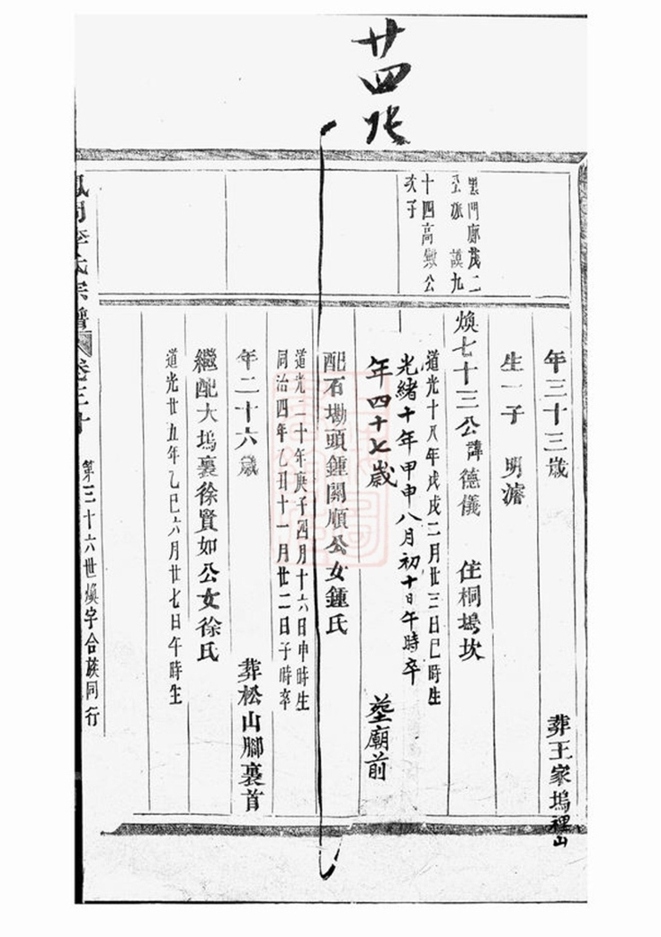 廿四北
里門廉茂二
公派諱九
十四高墽公
次子
年三十三歲 葬王家塢裡山
生一子 明濬
煥七十三公諱德儀 住桐塢坎
道光十八年戊戌二月廿三日巳時生
光緒十年甲申八月初十日午時卒
年四十七歲 塟廟前
配石塝頭鍾關順公女鍾氏
道光二十年庚子四月十六日申時生
同治四年乙丑十一月廿二日子時卒
年二十六歲 葬松山腳裏首
繼配大塢裏徐賢如公女徐氏
道光廿五年乙巳六月廿七日午時生
李氏宗譜 卷三十 第三十六世煥字合族同行